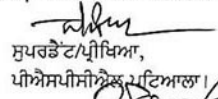 ਸੁਪਰਡੈਂਟ/ਪ੍ਰੀਖਿਆ,
ਪੀਐਸਪੀਸੀਐਲ, ਪਟਿਆਲਾ।